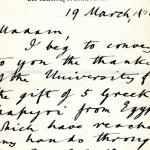 19 March, 18
Madam,
I beg to conve
to you the thanks
of the University f
the gift of 5 Greek
papyri from Egyp
which have reache
my hands throug